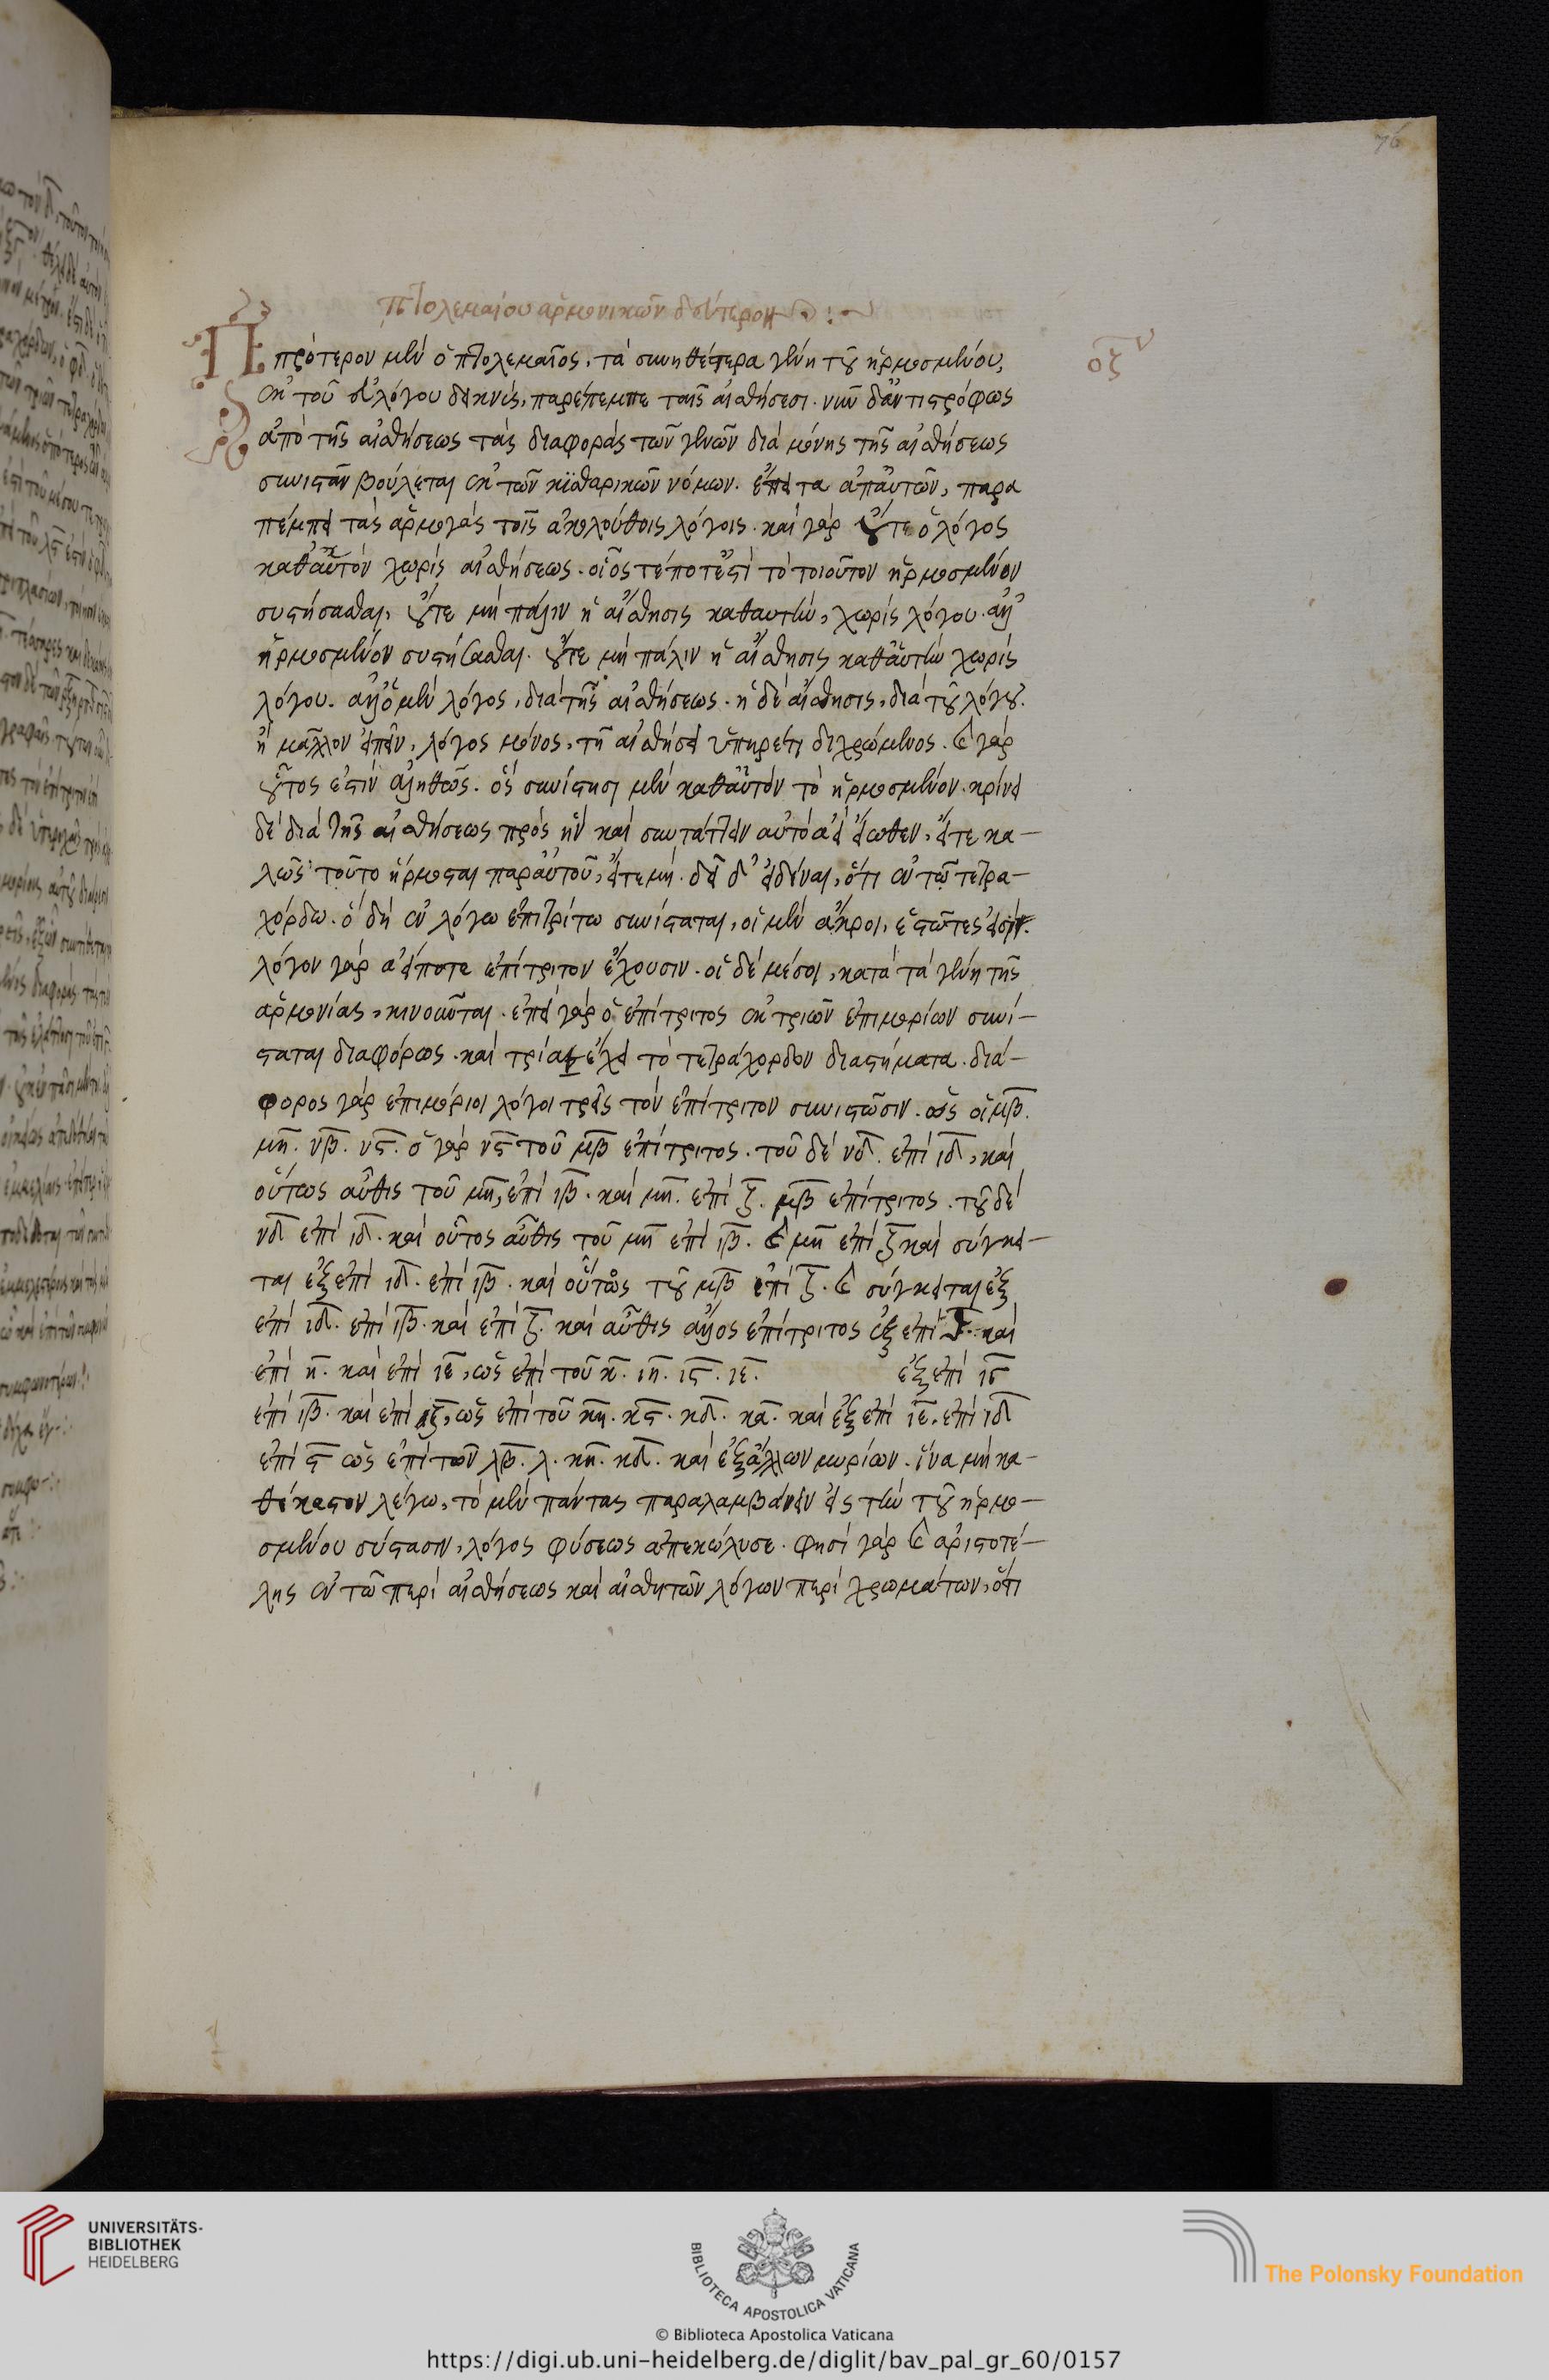 76
Πτολεμαίου ἁρμονικῶν δεύτερον
οζον
Π πρότερον μὲν ὁ πτολεμαῖος, τὰ συνηθέστερα γένη τοῦ ἡρμοσμένου,
ἐκ τοῦ λόγου δεικνὺς, παρέπεμπε ταῖς αἰσθήσεσι. νῦν δ' ἀντιστρόφως
ἀπὸ τῆς αἰσθήσεως τὰς διαφορὰς τῶν γενῶν διὰ μόνης τῆς αἰσθήσεως
συνιστᾶν βούλεται ἐκ τῶν κϊθαρικῶν νόμων. ἔπειτα ἀπ' αὐτῶν, παρα
πέμπει τὰς ἁρμογὰς τοῖς ἀκολούθοις λόγοις. καὶ γὰρ οὔτε ὁ λόγος
καθ' αὑτὸν χωρὶς αἰσθήσεως. οἷός τέ ποτ' ἐστὶ τὸ τοιοῦτον ἡρμοσμένον
συστήσασθαι, οὔτε μὴ πάλιν ἡ αἴσθησις καθαυτὴν, χωρὶς λόγου. ἀλλ'
ἡρμοσμένον συστήσασθαι. οὔτε μὴ πάλιν ἡ αἴσθησις καθ' αὑτὴν χωρὶς
λόγου. ἀλλ' ὁ μὲν λόγος, διὰ τῆς αἰσθήσεως. ἡ δὲ αἴσθησις, διὰ τοῦ λόγου.
ἢ μᾶλλον εἰπεῖν, λόγος μόνος, τῇ αἰσθήσει ὑπηρέτι διχρώμενος. καὶ γὰρ
οὗτος ἐστὶν ἀληθῶς. ὃς συνίστησι μὲν καθ' αὑτὸν τὸ ἡρμοσμένον. κρίνει
δὲ διὰ τῆς αἰσθήσεως πρὸς ἣν καὶ συντάττειν αὐτὸ ἀεὶ εἴωθεν, εἴτε κα-
λῶς τοῦτο ἥρμοσται παρ' αὐτοῦ, εἴτε μή. δεῖ δ' εἰδέναι, ὅτι ἐν τῷ τετρα-
χόρδω. ὃ δὴ ἐν λόγω ἐπιτρίτω συνίσταται, οἱ μὲν ἄκροι, ἑστῶτες εἰσίν.
λόγον γὰρ ἀείποτε ἐπίτριτον ἔχουσιν. οἱ δὲ μέσοι, κατὰ τὰ γένη τῆς
ἁρμονίας, κινοῦνται. ἐπεὶ γὰρ ὁ ἐπίτριτος ἐκ τριῶν ἐπιμορίων συνί-
σταται διαφόρως. καὶ τρία ἔχει τὸ τετράχορδον διαστήματα. διά-
φορος γὰρ ἐπιμόριοι λόγοι τρεῖς τὸν ἐπίτριτον συνιστῶσιν. ὡς οἱ μβ.
μη. νβ. νς. ὁ γὰρ νς τοῦ μβ ἐπίτριτος. τοῦ δὲ νδ. ἐπὶ ιδ, καὶ
οὕτως αὖθις τοῦ μη, ἐπὶ ιβ. καὶ μη. ἐπὶ ζ. μβ ἐπίτριτος. τοῦ δὲ
νδ ἐπὶ ιδ. καὶ οὗτος αὖθις τοῦ μη ἐπὶ ιβ. καὶ μη ἐπὶ ζ καὶ σύγκει-
ται ἐξ ἐπὶ ιδ. ἐπὶ ιβ. καὶ οὕτως τοῦ μβ ἐπὶ ζ. καὶ σύγκειται ἐξ
ἐπὶ ιδ. ἐπὶ ιβ. καὶ ἐπὶ ζ. καὶ αὖθις ἄλλος ἐπίτριτος ἐξ ἐπὶ καὶ
ἐπὶ η. καὶ ἐπὶ ιε, ὡς ἐπὶ τοῦ κ. ιη. ις. ιε. ἐξ ἐπὶ ις
ἐπὶ ιβ. καὶ ἐπὶ ζ, ὡς ἐπὶ τοῦ κη. κς. κδ. κα. καὶ ἐξ ἐπὶ ιε. ἐπὶ ιδ
ἐπὶ ς ὡς ἐπὶ τῶν λβ. λ. κη. κδ. καὶ ἐξ ἄλλων μυρίων. ἵνα μὴ κα-
θέκαστον λέγω, τὸ μὲν πάντας παραλαμβάνειν εἰς τὴν τοῦ ἡρμο-
σμένου σύστασιν, λόγος φύσεως ἀπεκώλυσε. φησὶ γὰρ καὶ ἀριστοτέ-
λης ἐν τῶ περὶ αἰσθήσεως καὶ αἰσθητῶν λόγων περὶ χρωμάτων, ὅτι
UNIVERSITÄTS-
BIBLIOTHEK
HEIDELBERG
BIBLIOTECA APOSTOLICA VATICANA
© Biblioteca Apostolica Vaticana
The Polonsky Foundation
https://digi.ub.uni-heidelberg.de/diglit/bav_pal_gr_60/0157